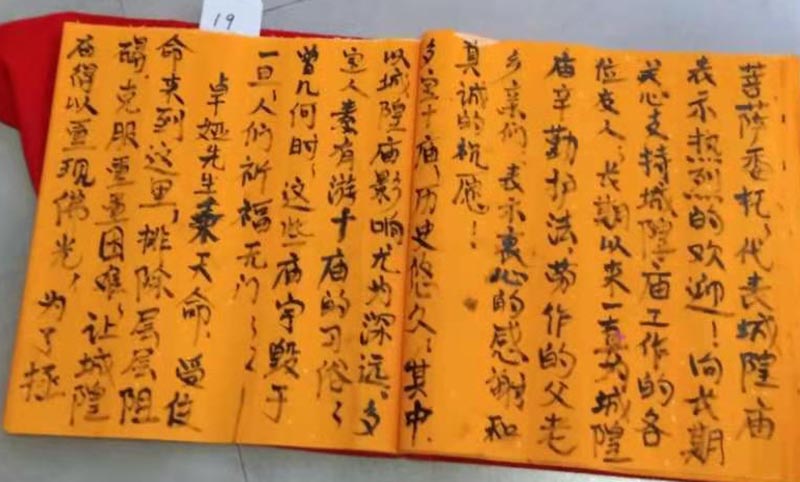 19
菩萨委托，代表城隍庙
表示热烈的欢迎！向长期
关心支持城隍庙工作的各
位友人，长期以来一直为城隍
庙辛勤护法、劳作的父老
乡亲们，表示衷心的感谢和
真诚的祝愿！
多宝十庙，历史悠久，其中
以城隍庙影响尤为深远。多
宝人素有游十庙的习俗，
曾几何时，这些庙宇毁于
一旦，人们祈福无门，
卓娅先生秉天命，受使
命来到这里，排除层层阻
碍，克服重重困难，让城隍
庙得以重现佛光，为了拯